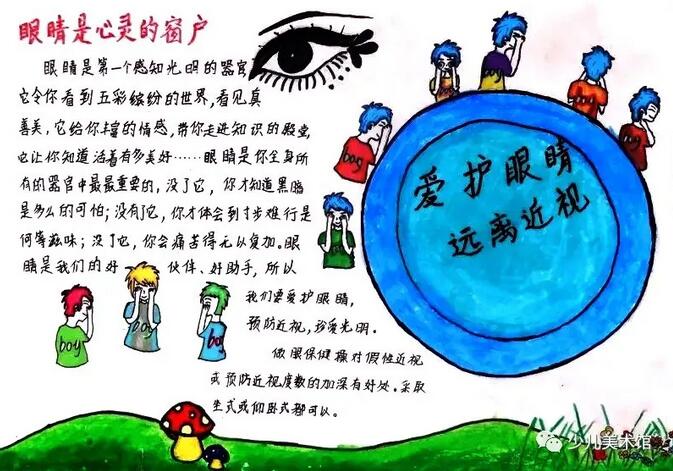 眼睛是心灵的窗户
眼睛是第一个感知光明的器官
它令你看到五彩缤纷的世界,看见真
善美,它给你丰富的情感,带你走进知识的殿堂
它让你知道活着有多美好……眼睛是你全身所
有的器官中最最重要的,没了它,你才知道黑暗
是多么的可怕;没有了它,你才体会到寸步难行是
何等滋味;没了它,你会痛苦得无以复加.眼
睛是我们的好 伙伴、好助手,所以
我们要爱护眼睛,
预防近视,珍爱光明.
做眼保健操对假性近视
或预防近视度数的加深有好处.采取
坐式或仰卧式都可以。
爱护眼睛
远离近视
boy
boy
boy
boy
boy
boy
少儿美术馆